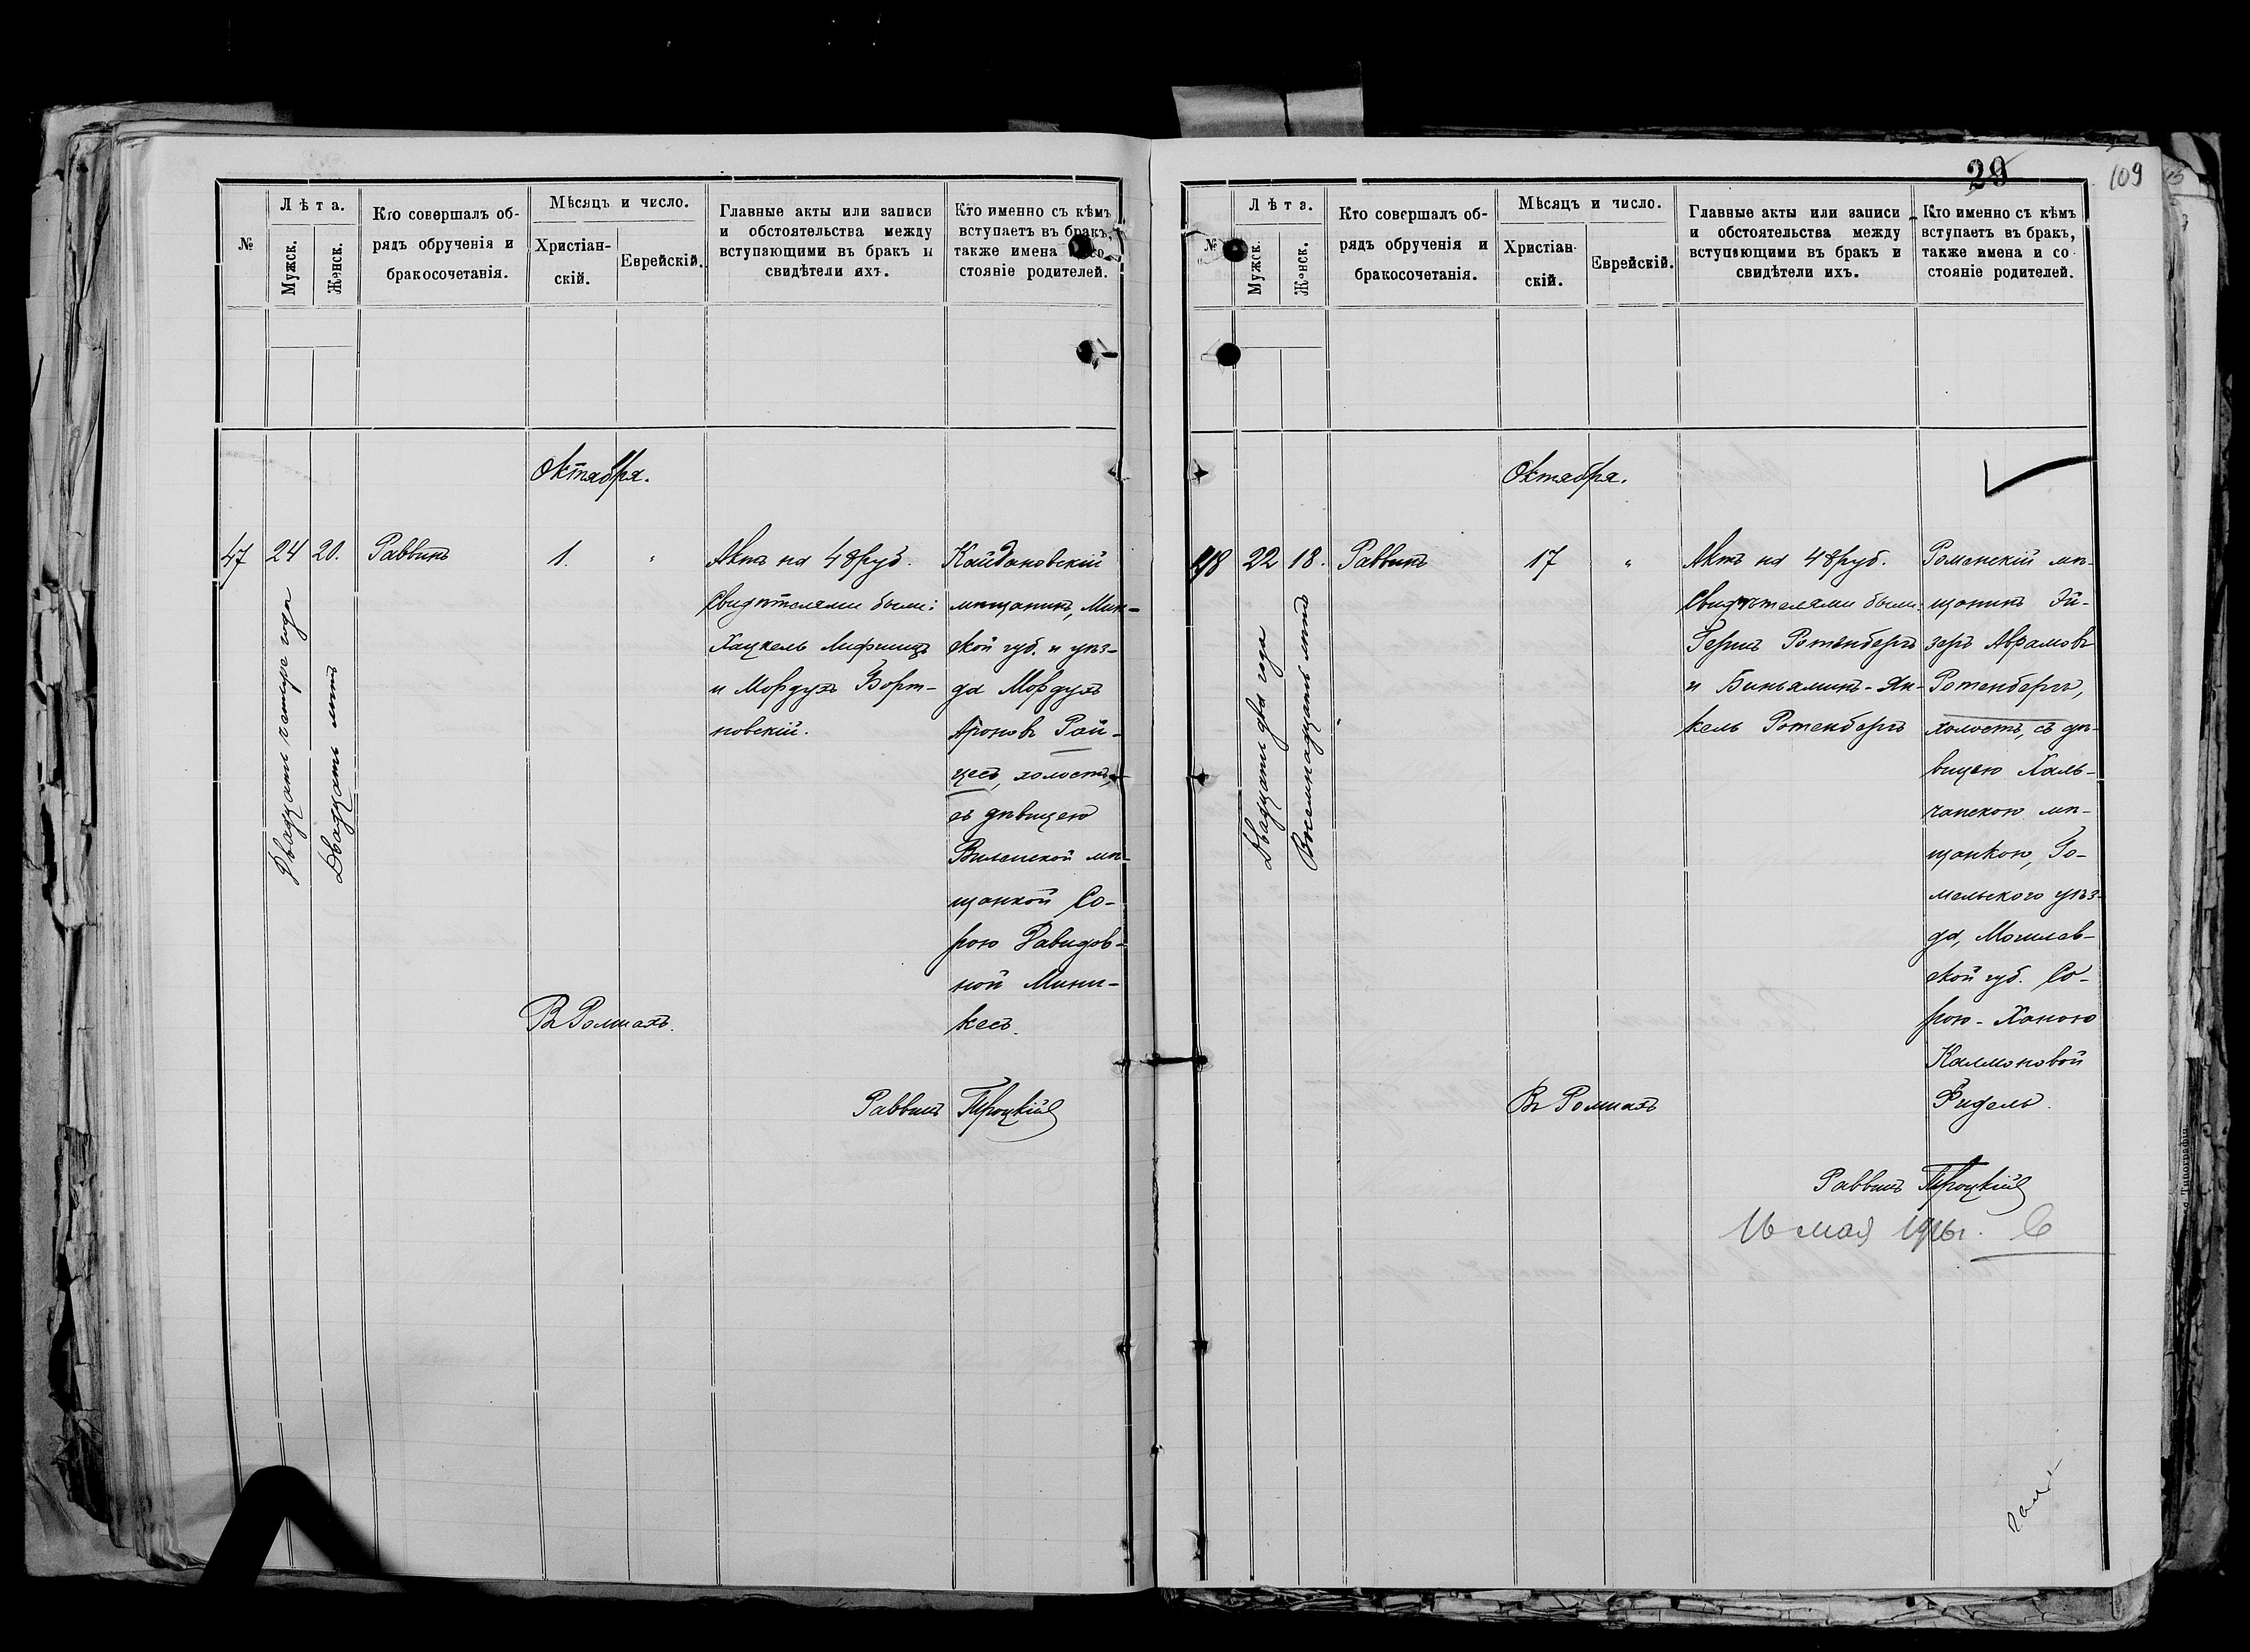 №
Лѣта.
Мужск.
Женск.
Кто совершалъ об-
рядъ обрученія и
бракосочетанія.
Мѣсяцъ и число.
Христіан-
скій.
Еврейскій.
Главные акты или записи
и обстоятельства между
вступающими въ бракъ и
свидѣтели ихъ.
Кто именно съ кѣмъ
вступаетъ въ бракъ,
также имена и со
стояніе родителей.
Октября.
47
24
20.
Двадцать четыре года
Двадцать лѣтъ
Раввинъ
1.
"
Актъ на 48 руб.
Свидѣтелями были:
Хацкель Лифшицъ
и Мордухъ Ворт-
новскій.
Кайдановскій
мѣщанинъ, Мин-
ской губ. и уѣз-
да Мордухъ
Ароновъ Рай-
цесъ, холостъ,
съ дѣвицею
Виленской мѣ-
щанкой Со-
рою Давидов-
ной Мини-
кесъ.
Въ Ромнахъ.
Раввинъ Троцкій
29
109
№
Лѣта.
Мужск.
Женск.
Кто совершалъ об-
рядъ обрученія и
бракосочетанія.
Мѣсяцъ и число.
Христіан-
скій.
Еврейскій.
Главные акты или записи
и обстоятельства между
вступающими въ бракъ и
свидѣтели ихъ.
Кто именно съ кѣмъ
вступаетъ въ бракъ,
также имена и со
стояніе родителей.
Октября.
48
22
18.
Двадцать два года
Восемнадцать лѣтъ
Раввинъ
17
"
Актъ на 48 руб.
Свидѣтелями были:
Гершъ Ротенбергъ
и Биньаминъ-Ян-
кель Ротенбергъ
Роменскій мѣ-
щанинъ Эй-
зеръ Аврамовъ
Ротенбергъ,
холостъ, съ дѣ-
вицею Халь-
чанскою мѣ-
щанкою, Го-
мельского уѣз-
да, Могилев-
ской губ. Со-
рою-Ханою
Калмановой
Фидель.
Въ Ромнахъ
Раввинъ Троцкій
16 мая 1916 г.
Типографія